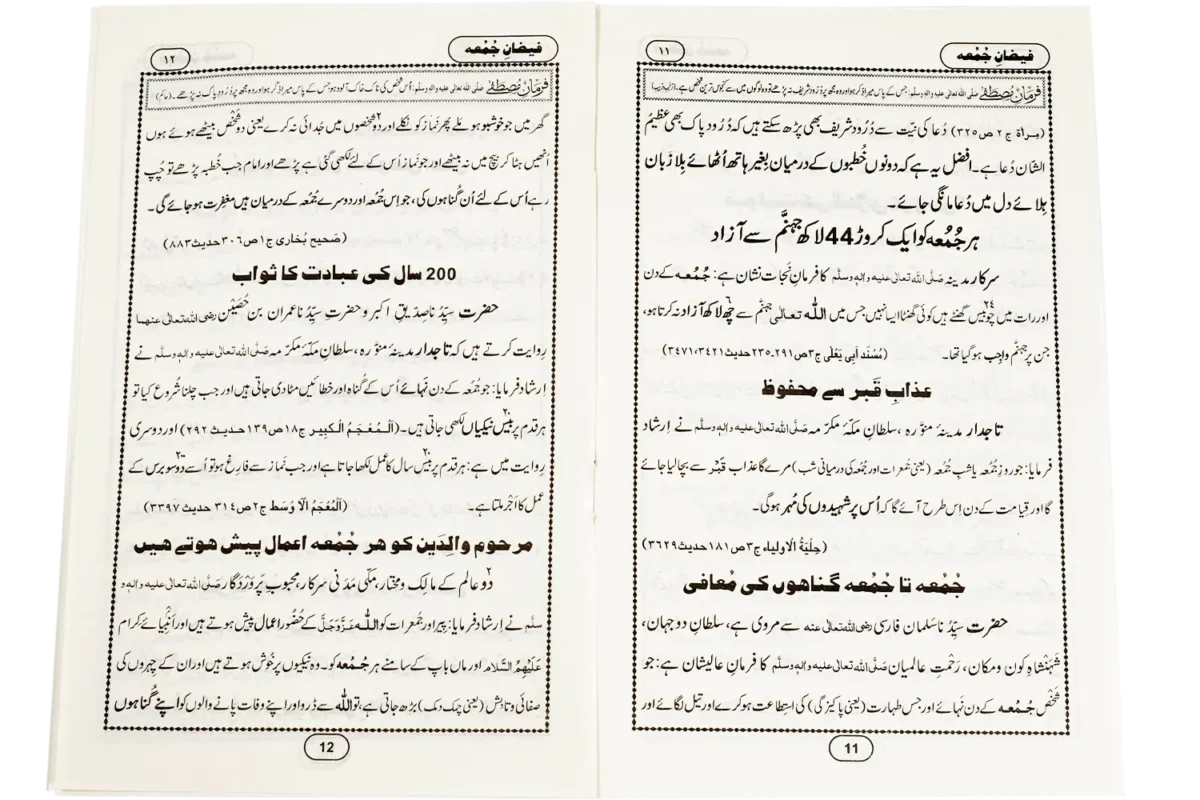 فیضانِ جُمُعہ
۱۱
فرمانِ مُصطَفٰے صلی اللہ تعالیٰ علیہ والہٖ وسلم: جس کے پاس میرا ذکر ہو اور وہ مجھ پر دُرُود شریف نہ پڑھے تو وہ لوگوں میں سے کنجوس ترین شخص ہے۔
(مِراٰۃ ج۲ ص۳۲۵) دُعا کی نیّت سے دُرُود شریف بھی پڑھ سکتے ہیں کہ دُرُود پاک بھی عظیمُ
الشّان دُعا ہے۔ افضل یہ ہے کہ دونوں خُطبوں کے درمیان بِغیر ہاتھ اُٹھائے بِلا زَبان
ہِلائے دل میں دُعا مانگی جائے۔
ہر جُمُعہ کو ایک کروڑ 44 لاکھ جہنَّم سے آزاد
سرکارِ مدینہ صَلَّی اللہ تعالٰی علیہ والہٖ وسلَّم کا فرمانِ نَجات نشان ہے: جُمُعہ کے دن
اور رات میں چوبیس گھنٹے ہیں کوئی گھنٹا ایسا نہیں جس میں اللہ تعالٰی جہنَّم سے چھ لاکھ آزاد نہ کرتا ہو،
جن پر جہنَّم واجِب ہو گیا تھا۔ (مُسْنَد اَبِی یَعْلٰی ج۳ ص۲۹۱۔۲۳۵ حدیث ۳۴۲۱،۳۴۷۱)
عذابِ قَبْر سے محفوظ
تاجدارِ مدینۂ منوَّرہ، سلطانِ مکّۂ مکرَّمہ صَلَّی اللہ تعالٰی علیہ والہٖ وسلَّم نے ارشاد
فرمایا: جو روزِ جُمُعہ یا شبِ جُمُعہ (یعنی جُمعرات اور جُمُعہ کی درمیانی شب) مرے گا عذابِ قَبْر سے بچا لیا جائے
گا اور قِیامت کے دن اِس طرح آئے گا کہ اُس پر شہیدوں کی مُہر ہو گی۔
(حِلْیَۃُ الْاولیاء ج۳ ص۱۸۱ حدیث ۳۶۲۹)
جُمُعہ تا جُمُعہ گناہوں کی مُعافی
حضرت سیِّدُنا سَلمان فارسی رضی اللہ تعالٰی عنہ سے مروی ہے، سلطانِ دو جہان،
شَہَنشاہِ کون و مکان، رَحْمتِ عالمیان صَلَّی اللہ تعالٰی علیہ والہٖ وسلَّم کا فرمانِ عالیشان ہے: جو
شَخْص جُمُعہ کے دن نہائے اور جس طہارت (یعنی پاکیزگی) کی استِطاعت ہو کرے اور تیل لگائے اور
11
فیضانِ جُمُعہ
۱۲
فرمانِ مُصطَفٰے صلی اللہ تعالیٰ علیہ والہٖ وسلم: اُس شخص کی ناک خاک آلود ہو جس کے پاس میرا ذکر ہو اور وہ مجھ پر دُرُود پاک نہ پڑھے۔ (حاکم)
گھر میں جو خوشبو ہو ملے پھر نَماز کو نکلے اور دو شخصوں میں جُدائی نہ کرے یعنی دو شخص بیٹھے ہوئے ہوں
اُنھیں ہٹا کر بیچ میں نہ بیٹھے اور جو نَماز اُس کے لئے لکھی گئی ہے پڑھے اور امام جب خطبہ پڑھے تو چُپ
رہے اُس کے لئے اُن گناہوں کی، جو اِس جُمُعہ اور دوسرے جُمُعہ کے درمیان ہیں مغفِرت ہو جائے گی۔
(صَحیح بُخاری ج۱ ص۳۰۶ حدیث ۸۸۳)
200 سال کی عبادت کا ثواب
حضرتِ سیِّدُنا صدیقِ اکبر و حضرتِ سیِّدُنا عمران بن حُصَیْن رضی اللہ تعالٰی عنہما
رِوایت کرتے ہیں کہ تاجدارِ مدینۂ منوَّرہ، سلطانِ مکّۂ مکرَّمہ صَلَّی اللہ تعالٰی علیہ والہٖ وسلَّم نے
ارشاد فرمایا: جو جُمُعہ کے دن نہائے اُس کے گُناہ اور خطائیں مٹا دی جاتی ہیں اور جب چلنا شُروع کیا تو
ہر قدم پر بیس نیکیاں لکھی جاتی ہیں۔ (اَلْمُعْجَمُ الْکبِیر ج۱۸ ص۱۳۹ حدیث ۲۹۲) اور دوسری
رِوایت میں ہے: ہر قدم پر بیس سال کا عمل لکھا جاتا ہے اور جب نَماز سے فارِغ ہو تو اُسے دو سو برس کے
عمل کا اَجْر ملتا ہے۔ (اَلْمُعْجَمُ الْاَوْسَط ج۲ ص۳۱۴ حدیث ۳۳۹۷)
مرحوم والِدَین کو ھر جُمُعہ اعمال پیش ہوتے ہیں
دو عالم کے مالِک و مختار، مکّی مَدَنی سرکار، محبوبِ پَرْوَرْدگار صَلَّی اللہ تعالٰی علیہ والہٖ و
سلَّم نے ارشاد فرمایا: پیر اور جُمعرات کو اللہ عَزَّوَجَلَّ کے حُضُور اعمال پیش ہوتے ہیں اور اَنبِیائے کرام
عَلَیْہِمُ السَّلام اور ماں باپ کے سامنے ہر جُمُعہ کو۔ وہ نیکیوں پر خوش ہوتے ہیں اور ان کے چہروں کی
صفائی و تابِش (یعنی چمک دمک) بڑھ جاتی ہے، تو اللہ سے ڈرو اور اپنے وفات پانے والوں کو اپنے گُناہوں
12